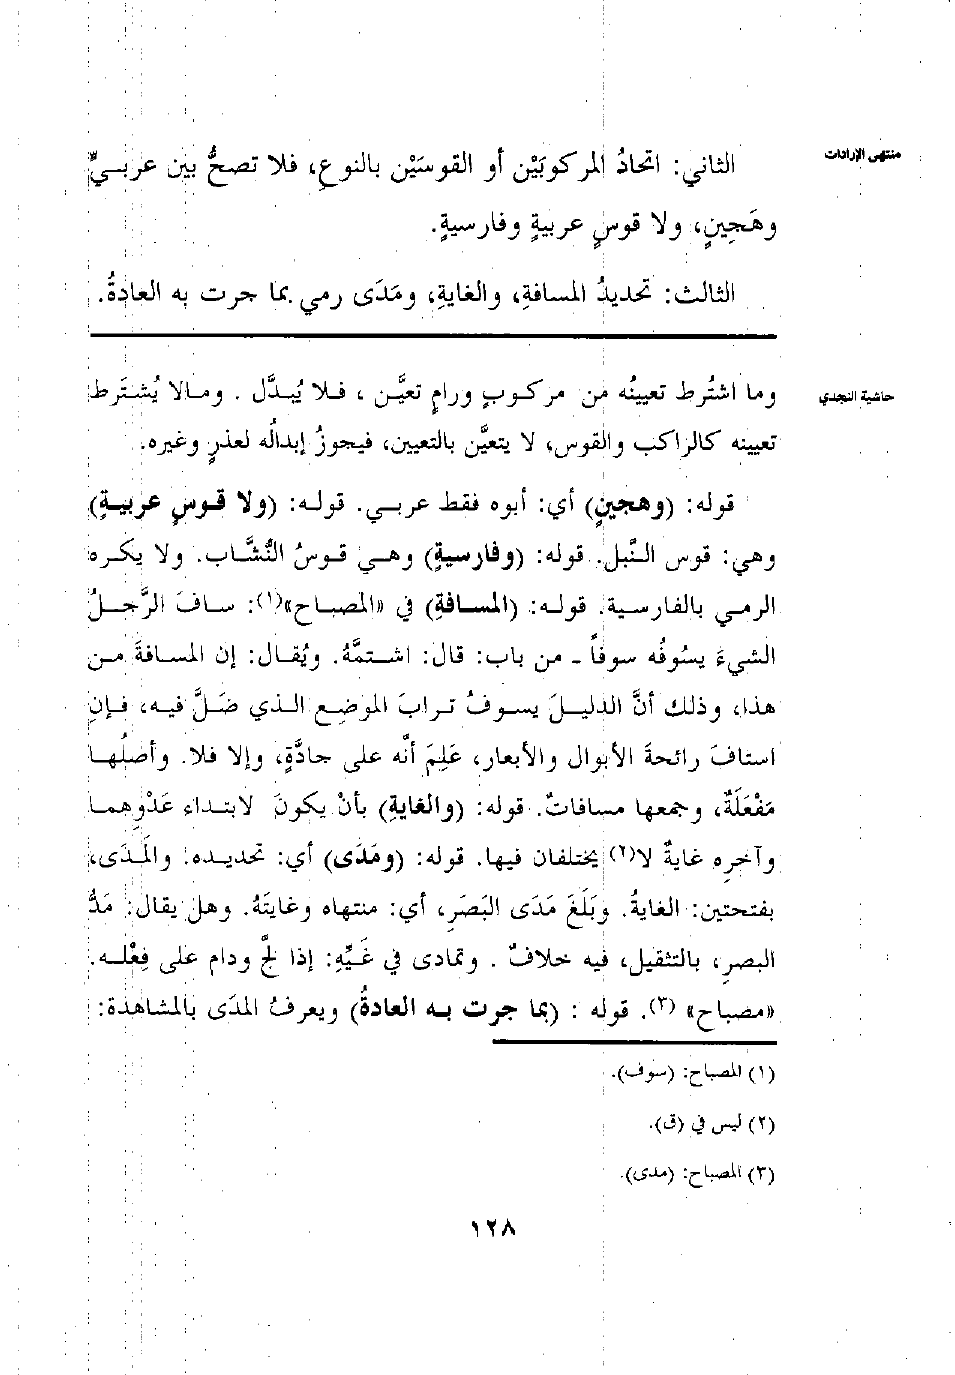 منتهى الإرادات
الثاني: اتحادُ المركوبَيْن أو القوسَيْن بالنوعِ، فلا تصحُّ بين عربـيٍّ
وهَجِينٍ، ولا قوسٍ عربيةٍ وفارسيةٍ.
الثالث: تحديدُ المسافةِ، والغايةِ، ومَدَى رمي بما جرت به العادةُ.
حاشية النجدي
وما اشتُرط تعيينُه من مركوبٍ ورامٍ تعيَّن ، فلا يُبدَّل . ومالا يُشترَط
تعيينه كالراكب والقوس، لا يتعيَّن بالتعيين، فيجوزُ إبدالُه لعذرٍ وغيره.
قوله: (وهجينٍ) أي: أبوه فقط عربي. قوله: (ولا قوسٍ عربيةٍ)
وهي: قوس النَّبل. قوله: (وفارسيةٍ) وهي قوسُ النُّشَّاب. ولا يكره
الرمي بالفارسية. قوله: (المسافةِ) في «المصباح»(١): سافَ الرَّجلُ
الشيءَ يسُوفُه سوفاً - من باب: قال: اشتمَّهُ. ويُقال: إن المسافةَ من
هذا، وذلك أنَّ الدليلَ يسوفُ ترابَ الموضعِ الذي ضَلَّ فيه، فإنِ
استافَ رائحةَ الأبوال والأبعار، عَلِمَ أنَّه على جادَّةٍ، وإلا فلا. وأصلُها
مَفْعَلَةٌ، وجمعها مسافاتٌ. قوله: (والغايةِ) بأنْ يكونَ لابتداء عَدْوِهما
وآخرِه غايةٌ لا(٢) يختلفان فيها. قوله: (ومَدَى) أي: تحديده. والمَدَى،
بفتحتين: الغايةُ. وبَلَغَ مَدَى البَصَرِ، أي: منتهاه وغايتَهُ. وهل يقال: مَدُّ
البصرِ، بالتثقيل، فيه خلافٌ . وتمادى في غَيِّهِ: إذا لجَّ ودام على فِعْلِه.
«مصباح» (٣). قوله : (بما جرت به العادةُ) ويعرفُ المدَى بالمشاهدة:
(١) المصباح: (سوف).
(٢) ليس في (ق).
(٣) المصباح: (مدى).
١٢٨